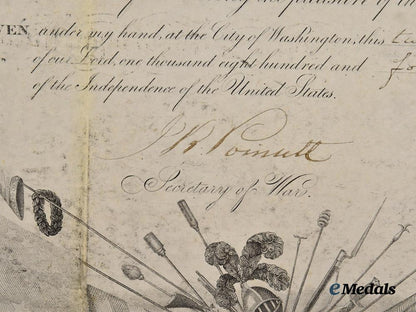 VEN, under my hand, at the City of Washington, this
of our Lord, one thousand eight hundred and
of the Independence of the United States.
J R Poinsett
Secretary of War.
eMedals